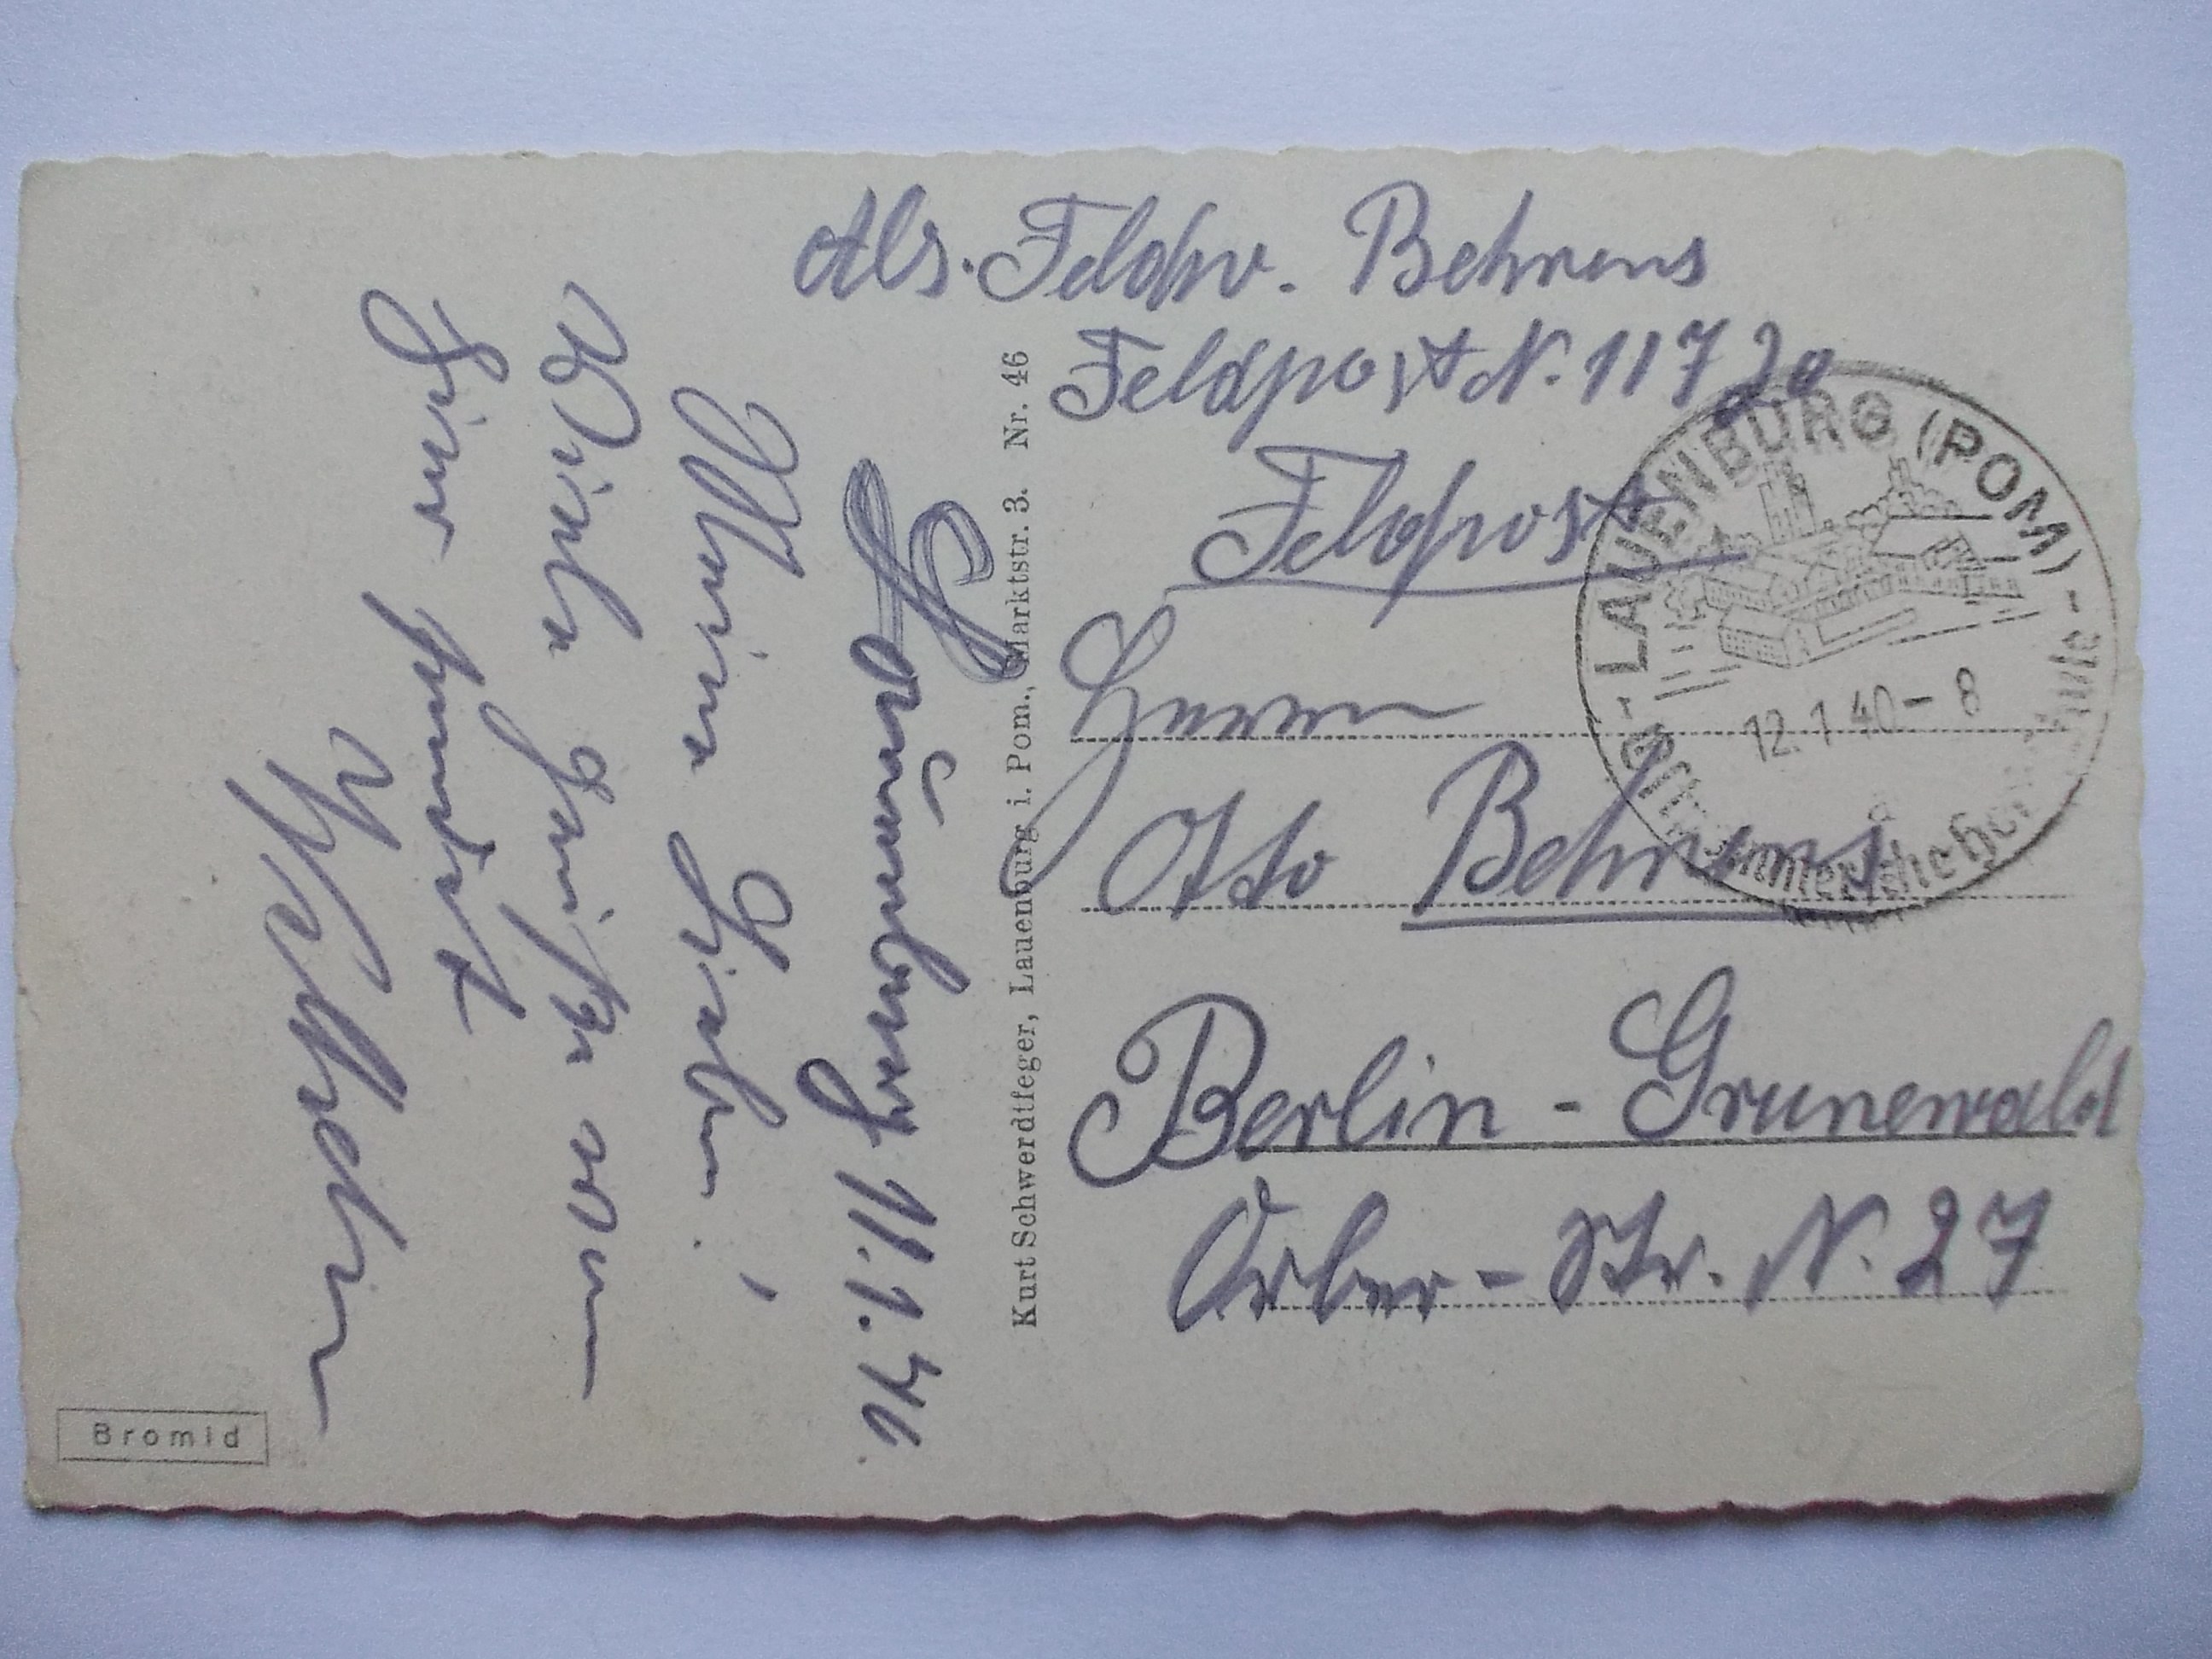 Abs. Feldw. Behrens
Feldpost N. 11720
Feldpost
Herrn
Otto Behrens
Berlin - Grunewald
Orber - Str. N. 27
LAUENBURG (POM)
12.1.40-8
a
Kurt Schwerdtfeger, Lauenburg i. Pom., Marktstr. 3. Nr. 46
Lauenburg 11.1.40.
Meine Lieben!
Viele Grüße von
hier sendet
Bromid